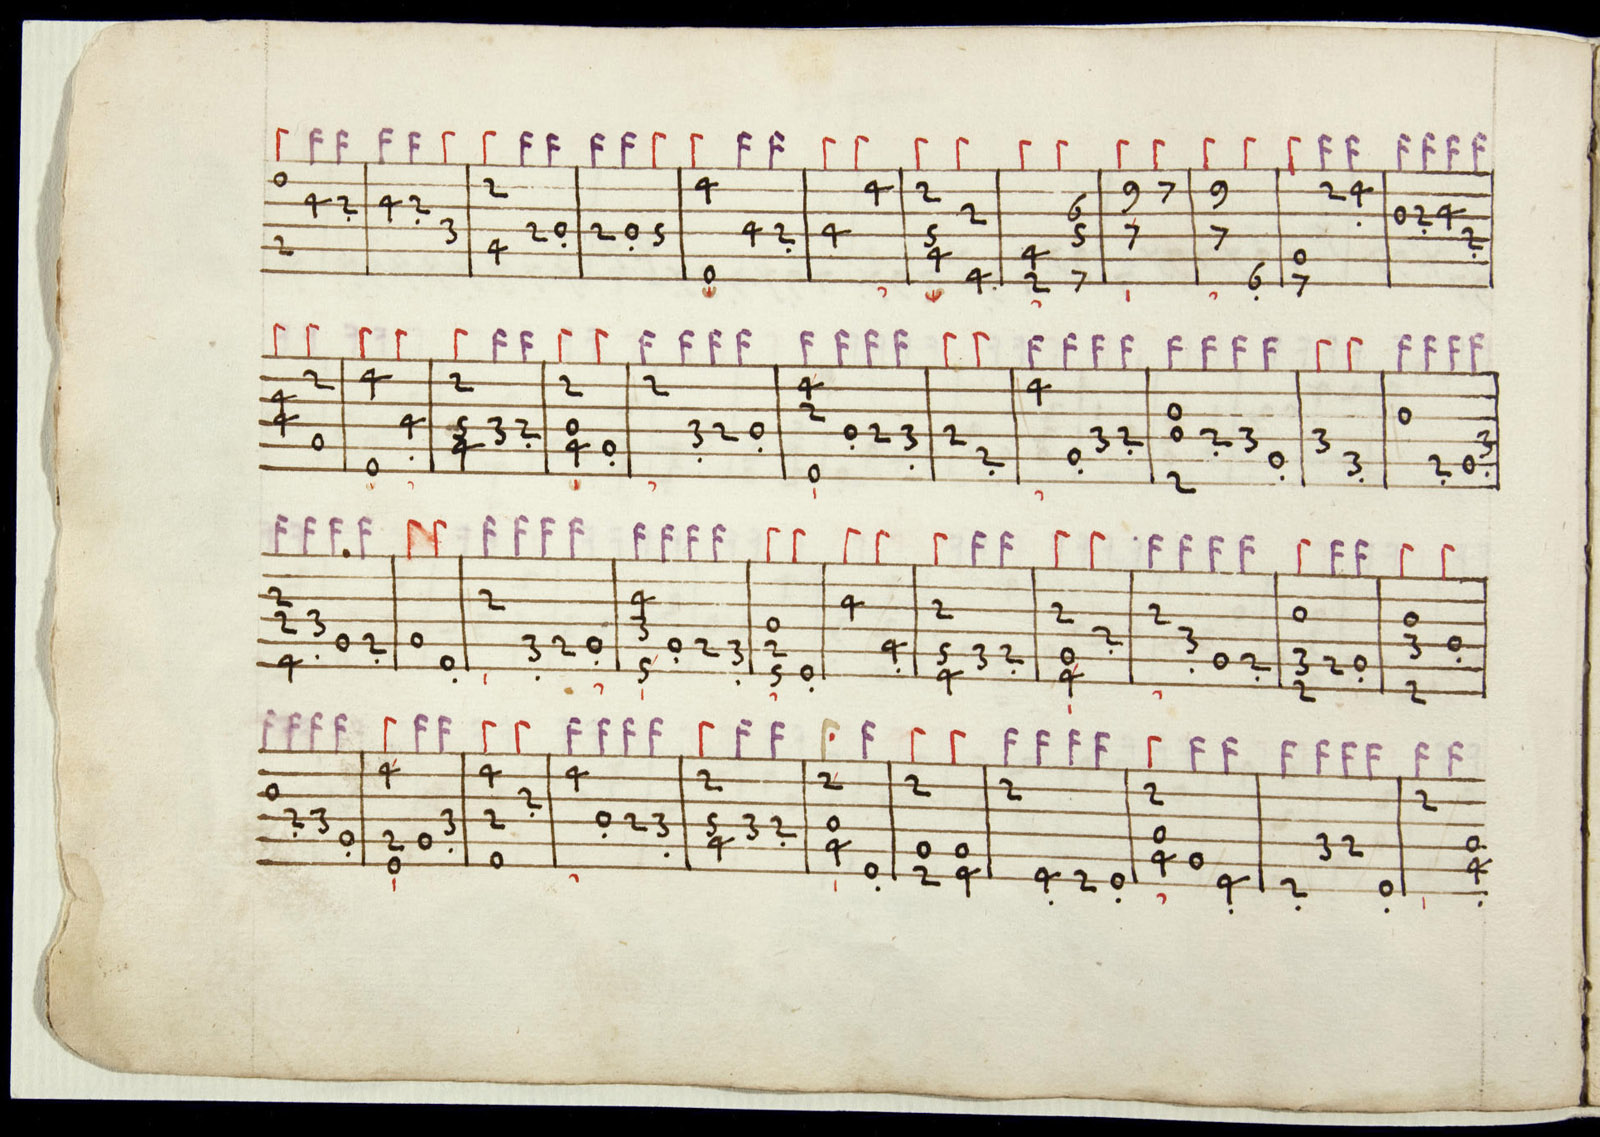 0 2 4 2 4 2 3 2 4 2 0 2 0 5 4 0 4 2 4 4 2 5 4 2 4 4 2 6 5 7 9 7 7 9 7 6 0 7 2 4 0 2 4 2
4 4 2 0 4 0 4 2 5 4 3 2 2 0 4 0 2 3 2 0 4 2 0 0 2 3 2 2 4 0 3 2 0 0 2 2 3 0 3 3 0 2 0 3
2 2 4 3 0 2 0 0 2 3 2 0 4 3 5 0 2 3 0 2 5 0 4 4 2 5 4 3 2 2 0 4 2 2 3 0 2 0 3 2 2 0 0 3 2 0
0 2 3 0 4 2 0 0 3 4 2 0 2 4 0 2 3 2 5 4 3 2 2 0 4 0 2 0 2 0 4 2 4 2 0 2 0 4 0 4 2 3 2 0 2 0 4